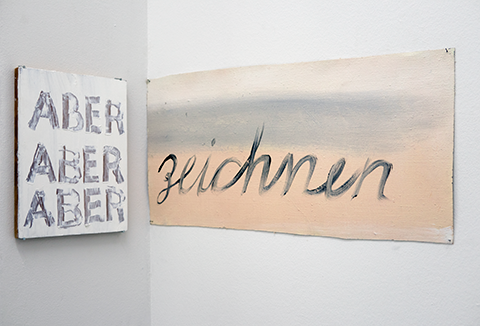 ABER
ABER
ABER
zeichnen